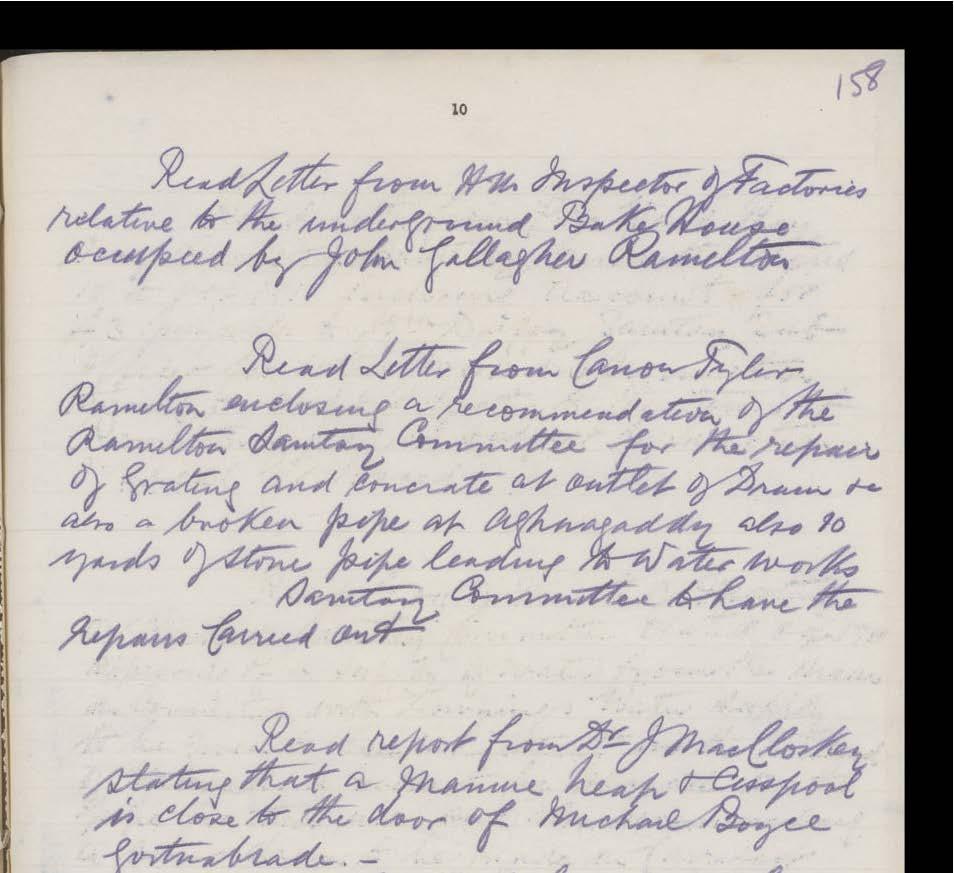 158
10
Read Letter from H M Inspector of Factories
relative to the underground Bake House
occupied by John Gallagher Ramelton
Read Letter from Canon Tyler
Ramelton enclosing a recommendation of the
Ramelton Sanitary Committee for the repair
of Grating and concrate at outlet of Drain
also a broken pipe at Aghnagaddy also 90
yards of stone pipe leading to Water works
Sanitary Committee to have the
repairs Carried out
Read report from Dr J MacCloskey
stating that a Manure heap & Cesspool
is close to the door of Michael Boyce
Gortnabrade. -